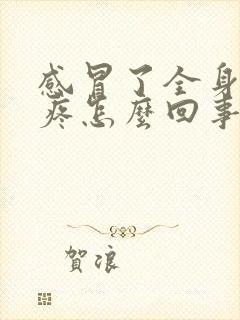 感冒了全身
疼怎麼回事
賀浪